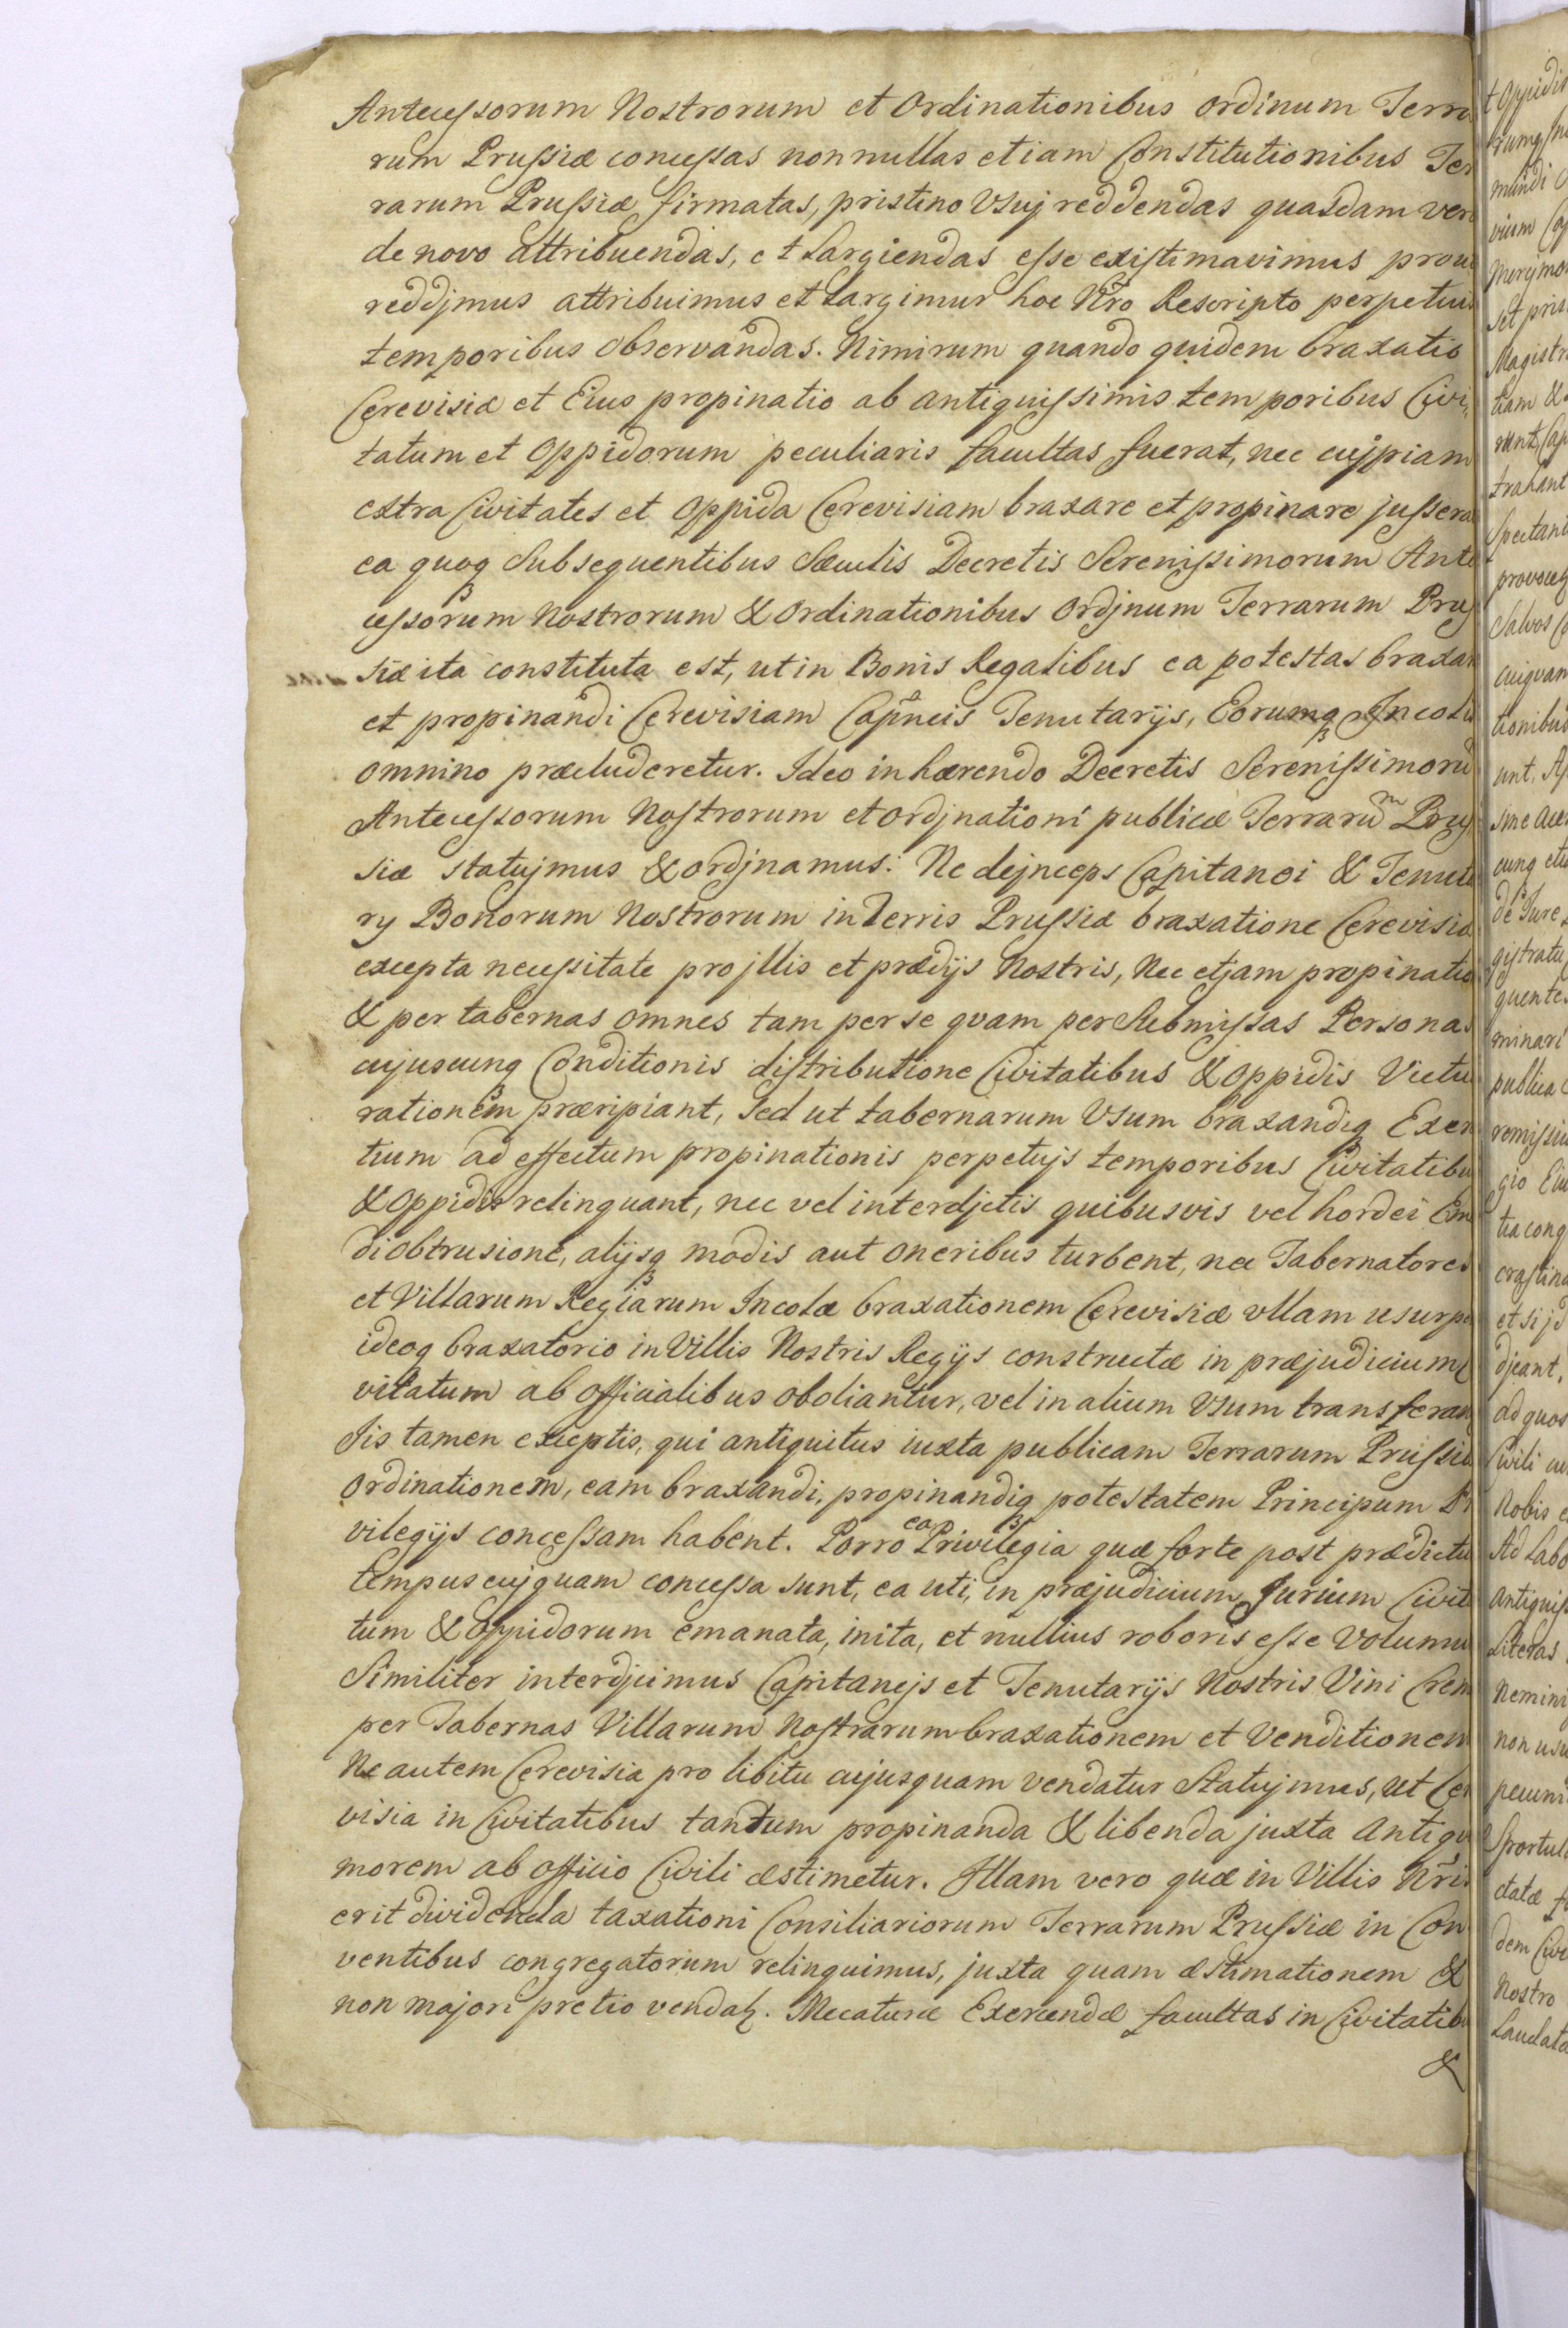 Antecessorum Nostrorum et Ordinationibus Ordinum Terra
rum Prussiæ concessas nonnullas etiam Constitutionibus Ter
rarum Prussiæ firmatas, pristino Usuj reddendas quasdam vero
de novo attribuendas, et Largiendas esse existimavimus prout
reddjmus attribuimus et Largimur hoc Nro Rescripto perpetuis
temporibus Observandas. Nimirum quando quidem braxatio
Cerevisiæ et Eius propinatio ab antiquissimis temporibus Civi,
tatum et Oppidorum peculiaris facultas fuerat, nec cujpiam
extra Civitates et Oppida Cerevisiam braxare et propinare jussera
ea quoq Subsequentibus Sæculis Decretis Serenissimorum Ante
cessorum Nostrorum & Ordinationibus Ordjnum Terrarum Prus
siæ ita constituta est, ut in Bonis Regalibus ea potestas braxan
et propinandi Cerevisiam Capneis Tenutarijs, Eorumq Incolis
omnino præcluderetur. Ideo inhærendo Decretis Serenissimorū
Antecessorum Nostrorum et ordjnationi publicæ Terrarum Prus
siæ statujmus & ordjnamus: Ne dejnceps Capitanei & Tenuta
rij Bonorum Nostrorum in Terris Prussiæ braxatione Cerevisiæ
excepta necessitate pro jllis et prædijs Nostris, Nec etjam propinatio
& per tabernas omnes tam per se quam per Submissas Personas
cujuscunq Conditionis distributione Civitatibus & Oppidis Victu
rationem præripiant, Sed ut tabernarum Usum braxandiq Exer
tium ad effectum propinationis perpetujs temporibus Civitatibu
& Oppidis relinquant, nec vel interdjctis quibusvis vel hordei Em
di obtrusione, alijsq modis aut oneribus turbent, nec Tabernatores
et Villarum Regiarum Incolæ braxationem Cerevisiæ ullam usurpe
ideoq braxatorio in Villis Nostris Regijs constructæ in præjudicium C
vitatum ab Officialibus aboliantur, vel in alium Usum transferan
Jis tamen exceptis, qui antiquitus iuxta publicam Terrarum Prussiæ
Ordinationem, eam braxandi, propinandiq potestatem Principum Pr
vilegijs concessam habent. Porro ea Privilegia quæ forte post prædictu
tempus cujquam concessa sunt, ea uti, in præjudicium Jurium Civit
tum & Oppidorum emanata, inita, et nullius roboris esse Volumu
Similiter interdjcimus Capitanejs et Tenutarijs Nostris Vini Crem
per Tabernas Villarum Nostrarum braxationem et Venditionem
Ne autem Cerevisia pro libitu cujusquam vendatur Statujmus, ut Cer
visia in Civitatibus tantum propinanda & libenda juxta Antiqu
morem ab officio Civili æstimetur. Illam vero quæ in Villis Nris
erit dividenda taxationi Consiliariorum Terrarum Prussiæ in Con
ventibus congregatorum relinquimus, juxta quam æstimationem &
non majori pretio vendatz. Mecaturæ Exercendæ facultas in Civitatibu
&